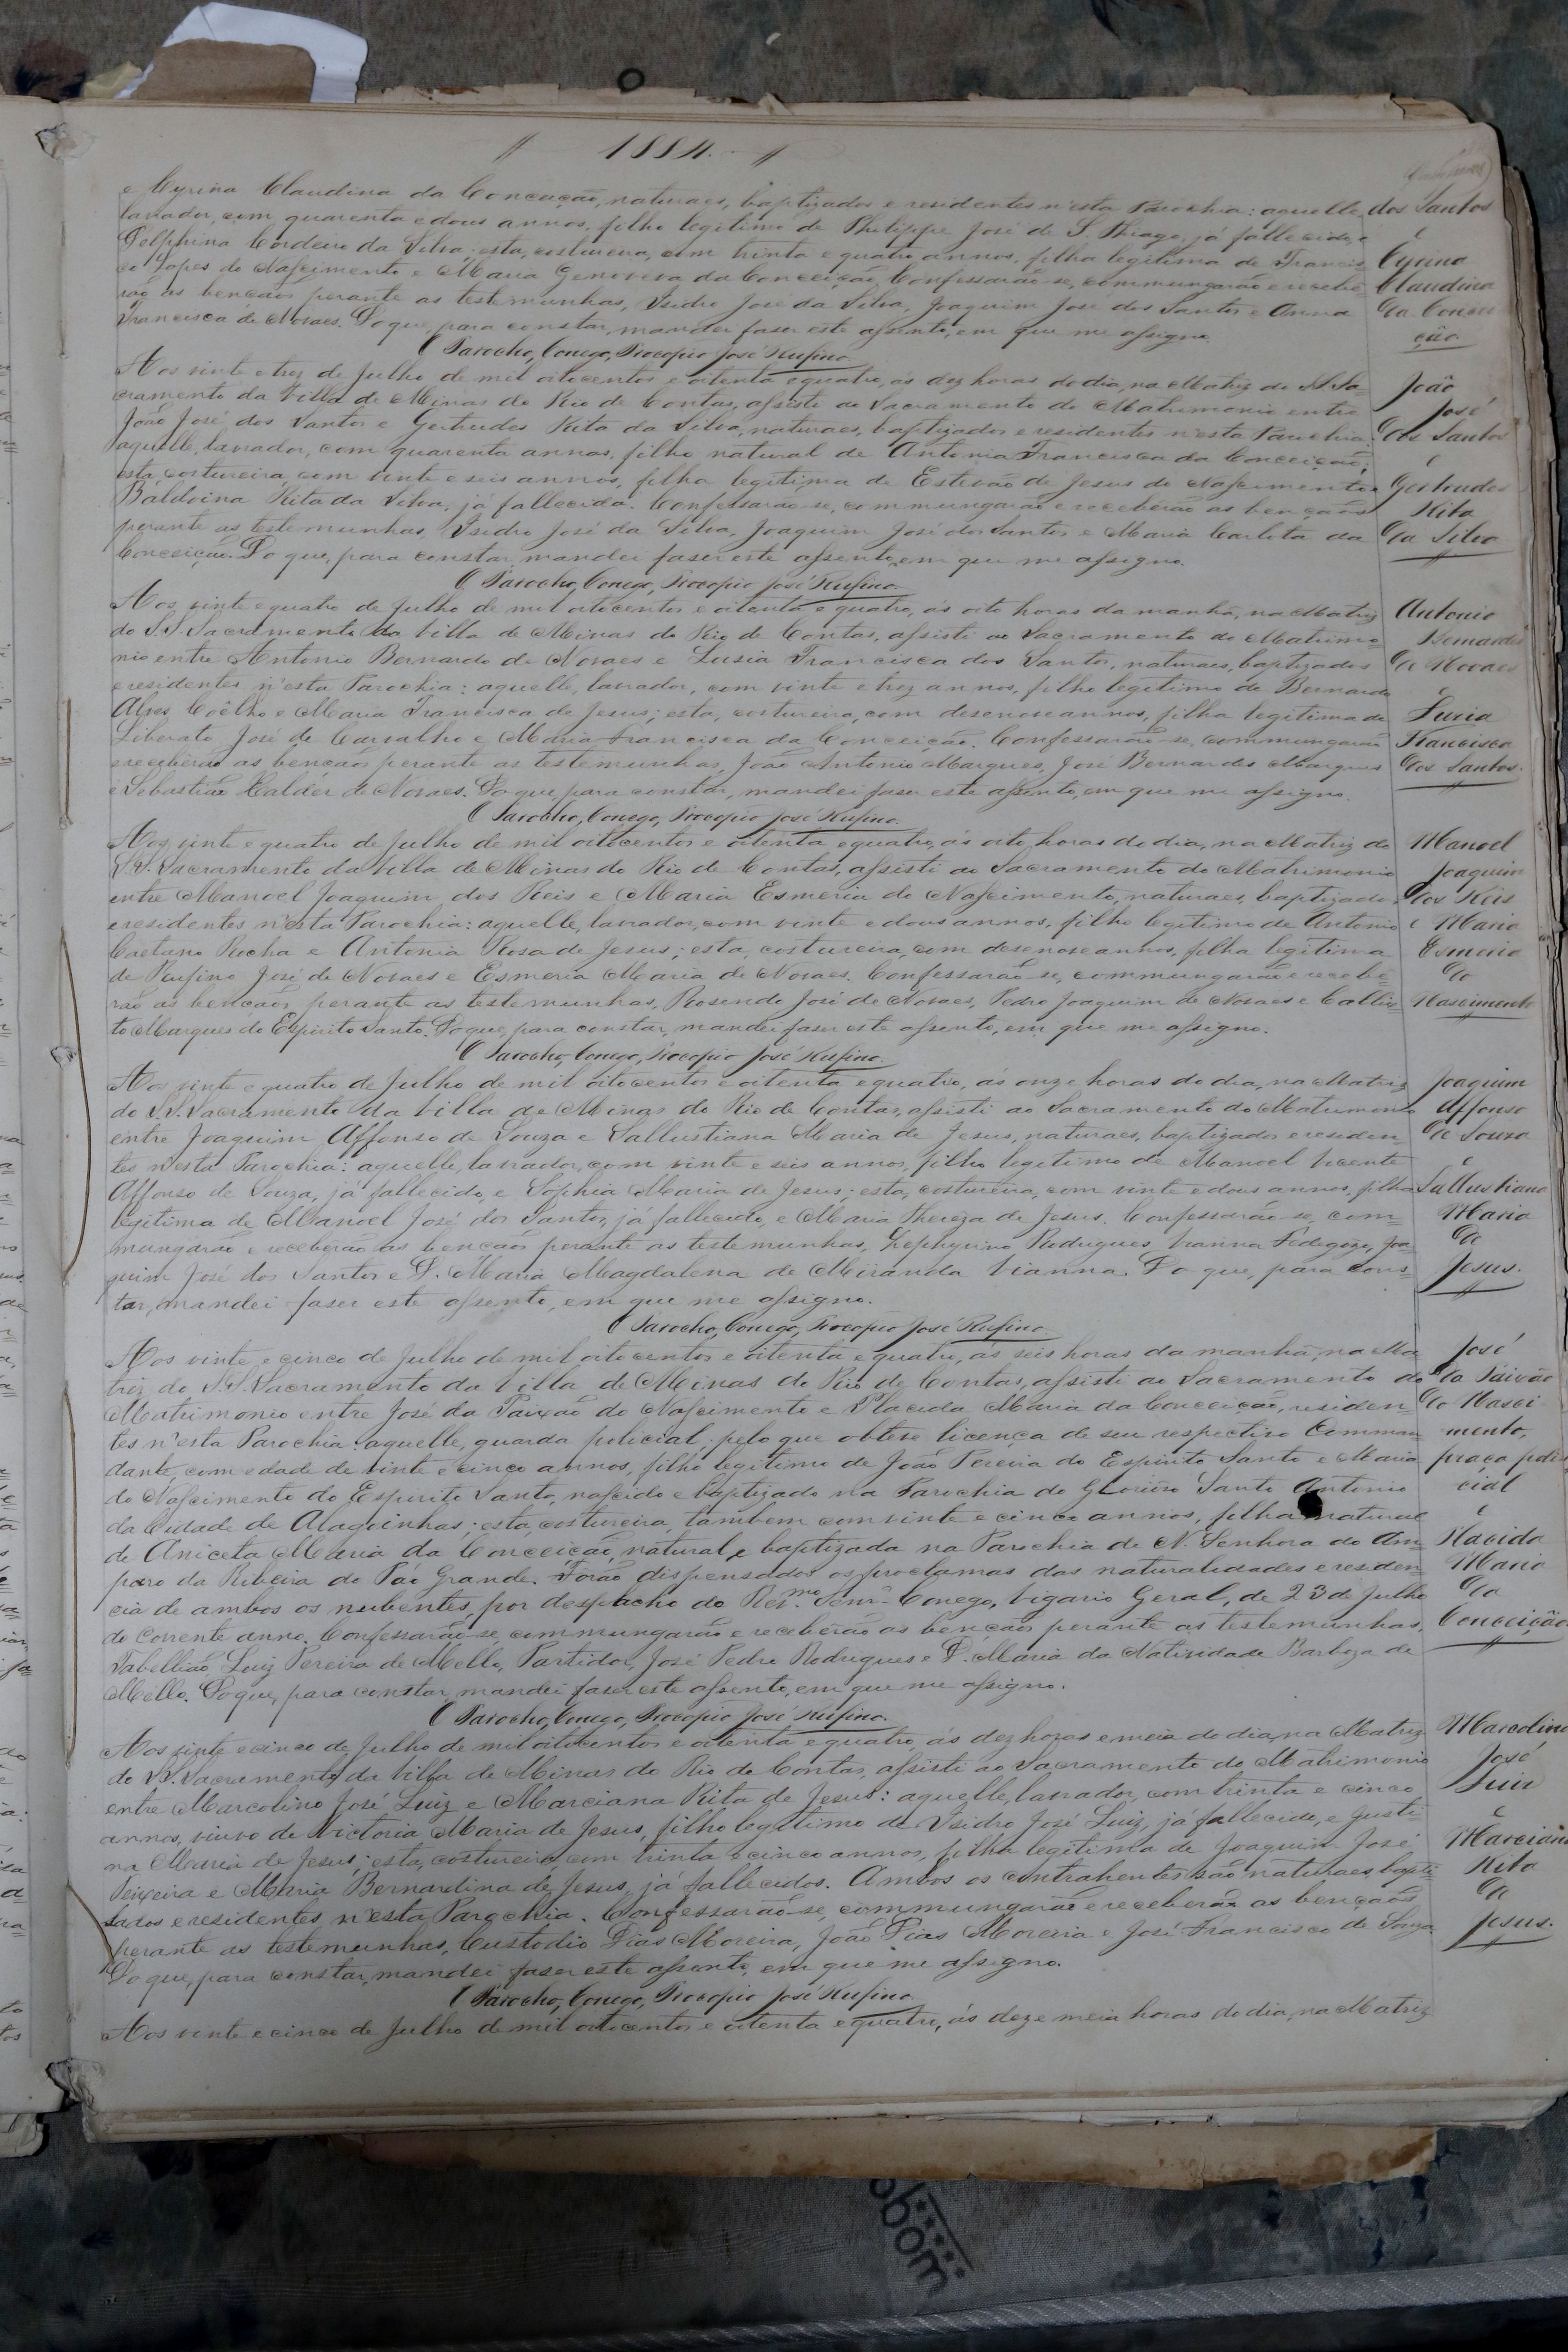 1884.
e Cyrina Claudina da Conceição, naturaes, baptizados e residentes n'esta Parochia: aquelle, dos Santos
lavrador, com quarenta e dous annos, filho legitimo de Philippe José de S. Thiago, já fallecido, e
e
Delphina Cordeiro da Silva; esta, costureira, com trinta e quatro annos, filha legitima de Francis= Cyrina
co Lopes do Nascimento e Maria Genoveva da Conceição. Confessarão-se, commungarão e recebe= Claudina
rão as bençãos perante as testemunhas, Isidro José da Silva, Joaquim José dos Santos e Anna da Concei
Francisca de Novaes. Do que, para constar, mandei faser este assento, em que me assigno.
ção.
O Parocho, Conego, Procopio José Rufino.
Aos vinte e trez de Julho de mil oitocentos e oitenta e quatro, ás dez horas do dia, na Matriz do SS. Sa= João
cramento da Villa de Minas do Rio de Contas, assisti ao Sacramento do Matrimonio entre José
João José dos Santos e Gertrudes Rita da Silva, naturaes, baptizados e residentes n'esta Parochia: dos Santos
aquelle, lavrador, com quarenta annos, filho natural de Antonia Francisca da Conceição; e
esta, costureira, com vinte e seis annos, filha legitima de Estevão de Jesus do Nascimento e Gertrudes
Baldoina Rita da Silva, já fallecida. Confessarão-se, commungarão e receberão as bençãos Rita
perante as testemunhas, Isidro José da Silva, Joaquim José dos Santos e Maria Carlota da da Silva
Conceição. Do que, para constar, mandei faser este assento, em que me assigno.
O Parocho, Conego, Procopio José Rufino.
Aos vinte e quatro de Julho de mil oitocentos e oitenta e quatro, ás oito horas da manhã, na Matriz Antonio
do SS. Sacramento da Villa de Minas do Rio de Contas, assisti ao Sacramento do Matrimo= Bernardo
nio entre Antonio Bernardo de Novaes e Lusia Francisca dos Santos, naturaes, baptizados de Novaes
e residentes n'esta Parochia: aquelle, lavrador, com vinte e trez annos, filho legitimo de Bernardo e
Alves Coêlho e Maria Francisca de Jesus; esta, costureira, com desenove annos, filha legitima de Lusia
Liberato José de Carvalho e Maria Francisca da Conceição. Confessarão-se, commungarão Francisca
e receberão as bençãos perante as testemunhas, João Antonio Marques, José Bernardes Marques dos Santos.
e Sebastião de Novaes. Do que, para constar, mandei faser este assento, em que me assigno.
O Parocho, Conego, Procopio José Rufino.
Aos vinte e quatro de Julho de mil oitocentos e oitenta e quatro, ás oito horas do dia, na Matriz do Manoel
SS. Sacramento da Villa de Minas do Rio de Contas, assisti ao Sacramento do Matrimonio Joaquim
entre Manoel Joaquim dos Reis e Maria Esmeria do Nascimento, naturaes, baptizados dos Reis
e residentes n'esta Parochia: aquelle, lavrador, com vinte e dous annos, filho legitimo de Antonio e Maria
Caetano Rocha e Antonia Rosa de Jesus; esta, costureira, com desenove annos, filha legitima Esmeria
de Rufino José de Novaes e Esmeria Maria de Novaes. Confessarão-se, commungarão e recebe= do
rão as bençãos perante as testemunhas, Rosendo José de Novaes, Pedro Joaquim de Novaes e Callix= Nascimento
to Marques do Espirito Santo. Do que, para constar, mandei faser este assento, em que me assigno.
O Parocho, Conego, Procopio José Rufino.
Aos vinte e quatro de Julho de mil oitocentos e oitenta e quatro, ás onze horas do dia, na Matriz Joaquim
do SS. Sacramento da Villa de Minas do Rio de Contas, assisti ao Sacramento do Matrimonio Affonso
entre Joaquim Affonso de Souza e Sallustiana Maria de Jesus, naturaes, baptizados e residen de Souza
tes n'esta Parochia: aquelle, lavrador, com vinte e seis annos, filho legitimo de Manoel Vicente e
Affonso de Souza, já fallecido, e Sophia Maria de Jesus; esta, costureira, com vinte e dous annos, filha Sallustiana
legitima de Manoel José dos Santos, já fallecido, e Maria Thereza de Jesus. Confessarão-se, com= Maria
mungarão e receberão as bençãos perante as testemunhas, Zephyrino Rodrigues Vianna Pedegoze, Joa= de
quim José dos Santos e D. Maria Magdalena de Miranda Vianna. Do que, para cons= Jesus.
tar, mandei faser este assento, em que me assigno.
O Parocho, Conego, Procopio José Rufino
Aos vinte e cinco de Julho de mil oitocentos e oitenta e quatro, ás seis horas da manhã, na Ma José
triz do SS. Sacramento da Villa de Minas do Rio de Contas, assisti ao Sacramento do da Paixão
Matrimonio entre José da Paixão do Nascimento e Placida Maria da Conceição, residen= do Nasci
tes n'esta Parochia: aquelle, guarda policial, pelo que obteve licença de seu respectivo Comman mento,
dante, com edade de vinte e cinco annos, filho legitimo de João Pereira do Espirito Santo e Maria praça poli
do Nascimento do Espirito Santo, nascido e baptizado na Parochia do Glorioso Santo Antonio cial
da Cidade de Alagoinhas; esta, costureira, tambem com vinte e cinco annos, filha natural e
de Aniceta Maria da Conceição, natural e baptizada na Parochia de N. Senhora do Am Placida
paro da Ribeira do Páo Grande. Forão dispensados os proclamas das naturalidades e residen Maria
cia de ambos os nubentes, por despacho do Rev.mo Senr. Conego, Vigario Geral, de 23 de Julho da
do corrente anno. Confessarão-se, commungarão e receberão as bençãos perante as testemunhas, Conceição.
Tabellião, Luiz Pereira de Mello, Partidor, José Pedro Rodrigues e D. Maria da Natividade Barboza de
Mello. Do que, para constar, mandei faser este assento, em que me assigno.
O Parocho, Conego, Procopio José Rufino.
Aos vinte e cinco de Julho de mil oitocentos e oitenta e quatro, ás dez horas e meia do dia, na Matriz Marcolino
do SS. Sacramento da Villa de Minas do Rio de Contas, assisti ao Sacramento do Matrimonio José
entre Marcolino José Luiz e Marciana Rita de Jesus: aquelle, lavrador, com trinta e cinco Luiz
annos, viuvo de Victoria Maria de Jesus, filho legitimo de Isidro José Luiz, já fallecido, e Justi= e
na Maria de Jesus; esta, costureira, com trinta e cinco annos, filha legitima de Joaquim José Marciana
Teixeira e Maria Bernardina de Jesus, já fallecidos. Ambos os contrahentes são naturaes, bapti Rita
sados e residentes n'esta Parochia. Confessarão-se, commungarão e receberão as bençãos de
perante as testemunhas, Custodio Dias Moreira, João Dias Moreira e José Francisco de Souza. Jesus.
Do que, para constar, mandei faser este assento, em que me assigno.
O Parocho, Conego, Procopio José Rufino.
Aos vinte e cinco de Julho de mil oitocentos e oitenta e quatro, ás dez e meia horas do dia, na Matriz